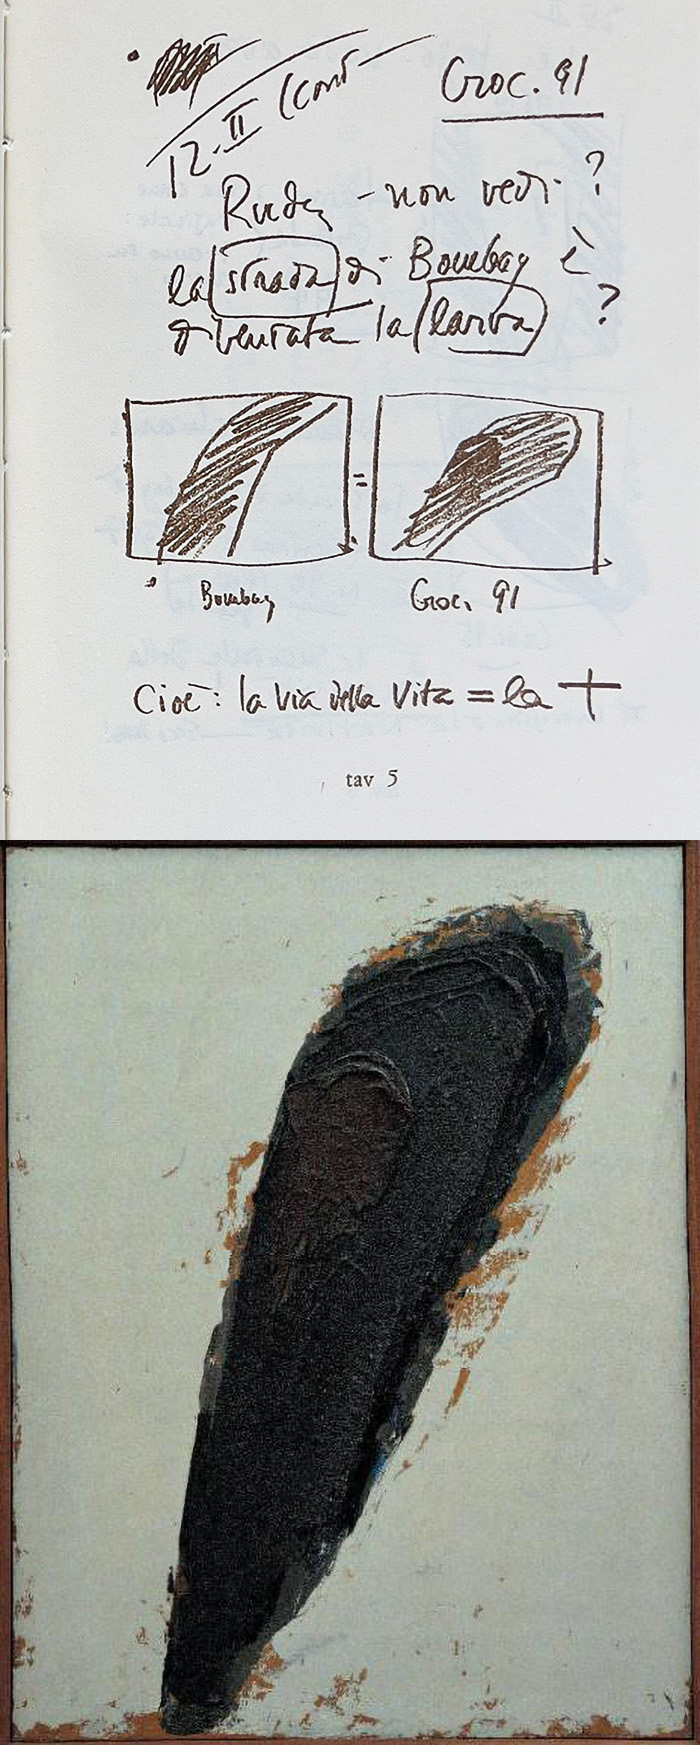 12-II (cont
Croc. 91
Rudy - non vedi ?
la strada di Bombay è
diventata la larva ?
=
Bombay
Croc. 91
Cioè: la via della Vita = la +
tav 5